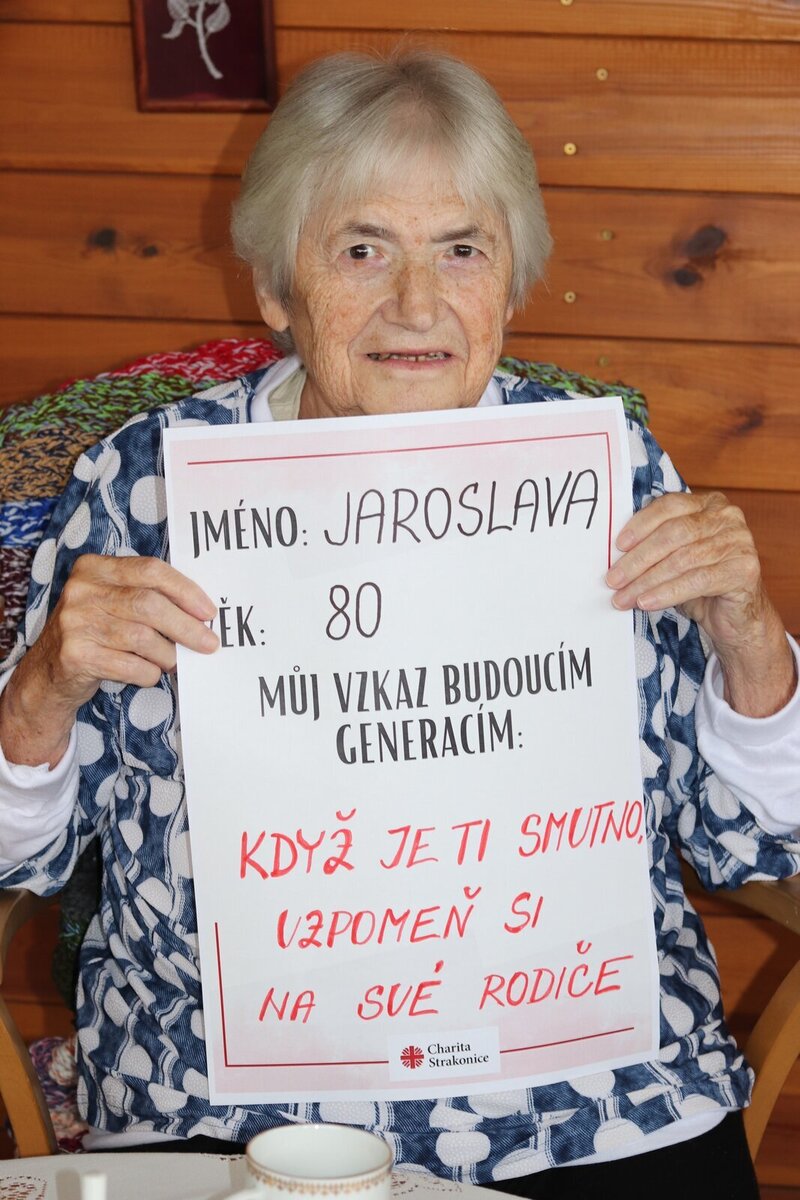 JMÉNO: JAROSLAVA
ĚK: 80
MŮJ VZKAZ BUDOUCÍM
GENERACÍM:
KDYŽ JE TI SMUTNO,
VZPOMEŇ SI
NA SVÉ RODIČE
Charita
Strakonice